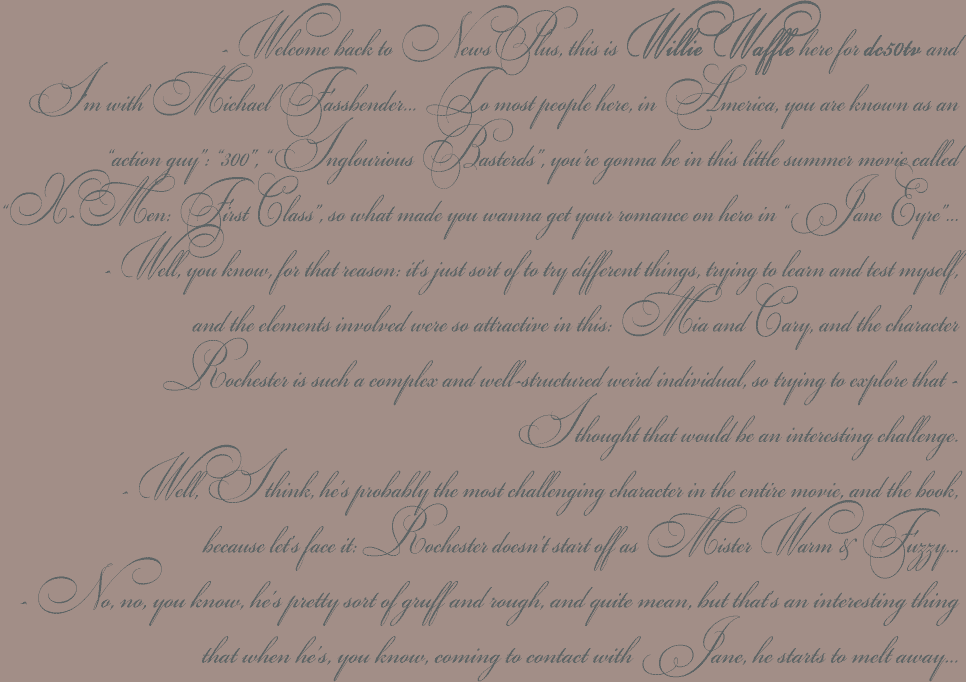 - Welcome back to News Plus, this is Willie Waffle here for dc50tv and
I'm with Michael Fassbender... To most people here, in America, you are known as an
"action guy": "300", "Inglourious Basterds", you're gonna be in this little summer movie called
"X-Men: First Class", so what made you wanna get your romance on hero in "Jane Eyre"...
- Well, you know, for that reason: it's just sort of to try different things, trying to learn and test myself,
and the elements involved were so attractive in this: Mia and Cary, and the character
Rochester is such a complex and well-structured weird individual, so trying to explore that -
I thought that would be an interesting challenge.
- Well, I think, he's probably the most challenging character in the entire movie, and the book,
because let's face it: Rochester doesn't start off as Mister Warm & Fuzzy...
- No, no, you know, he's pretty sort of gruff and rough, and quite mean, but that's an interesting thing
that when he's, you know, coming to contact with Jane, he starts to melt away...